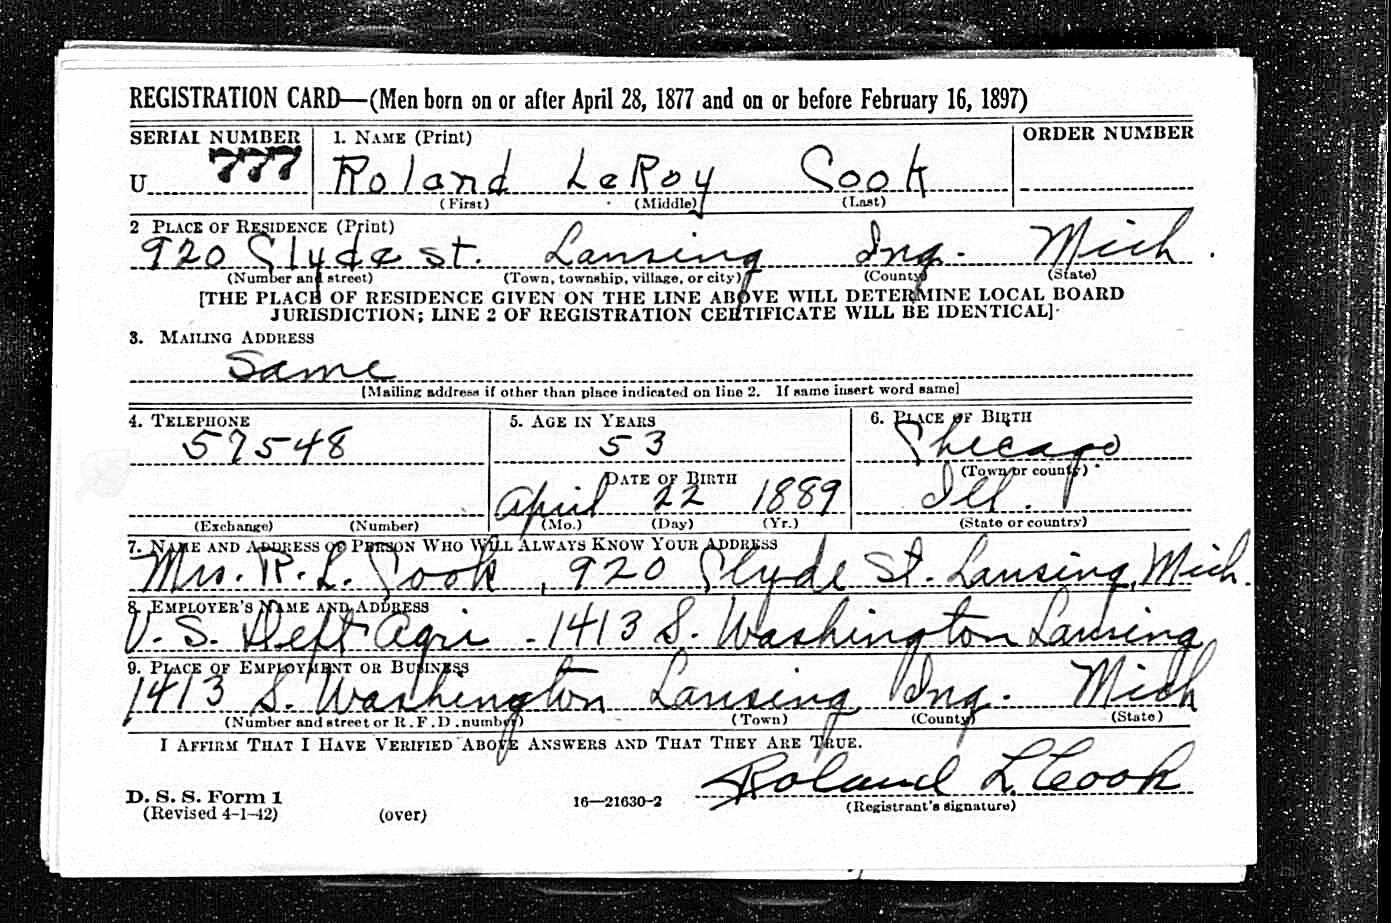 REGISTRATION CARD—(Men born on or after April 28, 1877 and on or before February 16, 1897)
SERIAL NUMBER 1. NAME (Print) ORDER NUMBER
U 777 Roland LeRoy Cook
(First) (Middle) (Last)
2 PLACE OF RESIDENCE (Print)
920 Clyde St. Lansing Ing. Mich.
(Number and street) (Town, township, village, or city) (County) (State)
[THE PLACE OF RESIDENCE GIVEN ON THE LINE ABOVE WILL DETERMINE LOCAL BOARD
JURISDICTION; LINE 2 OF REGISTRATION CERTIFICATE WILL BE IDENTICAL]
3. MAILING ADDRESS
Same
[Mailing address if other than place indicated on line 2. If same insert word same]
4. TELEPHONE 5. AGE IN YEARS 6. PLACE OF BIRTH
57548 53 Chicago
DATE OF BIRTH (Town or county)
April 22 1889 Ill.
(Exchange) (Number) (Mo.) (Day) (Yr.) (State or country)
7. NAME AND ADDRESS OF PERSON WHO WILL ALWAYS KNOW YOUR ADDRESS
Mrs. R. L. Cook, 920 Clyde St. Lansing, Mich.
8. EMPLOYER'S NAME AND ADDRESS
U. S. Dept Agri - 1413 S. Washington Lansing
9. PLACE OF EMPLOYMENT OR BUSINESS
1413 S. Washington Lansing Ing. Mich
(Number and street or R. F. D. number) (Town) (County) (State)
I AFFIRM THAT I HAVE VERIFIED ABOVE ANSWERS AND THAT THEY ARE TRUE.
Roland L. Cook
D. S. S. Form 1 16—21630-2 (Registrant's signature)
(Revised 4-1-42) (over)